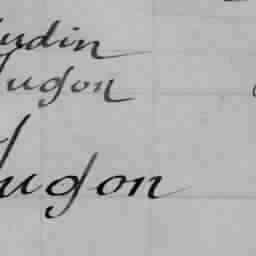 udin
ugon
ugon